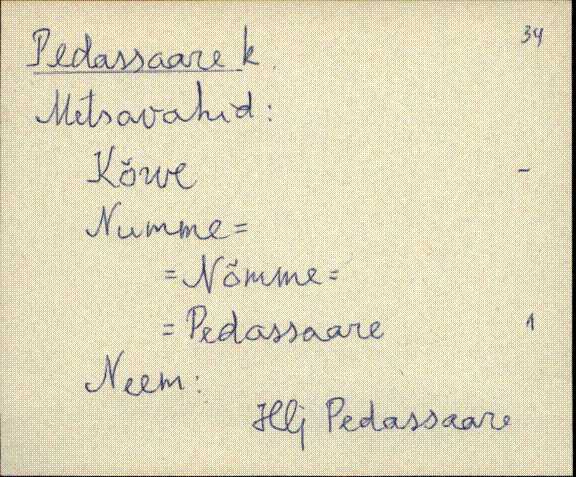 Pedassaare k. 34
Metsavahid:
Kõrve -
Numme=
=Nõmme=
=Pedassaare 1
Neem:
Hlj Pedassaare